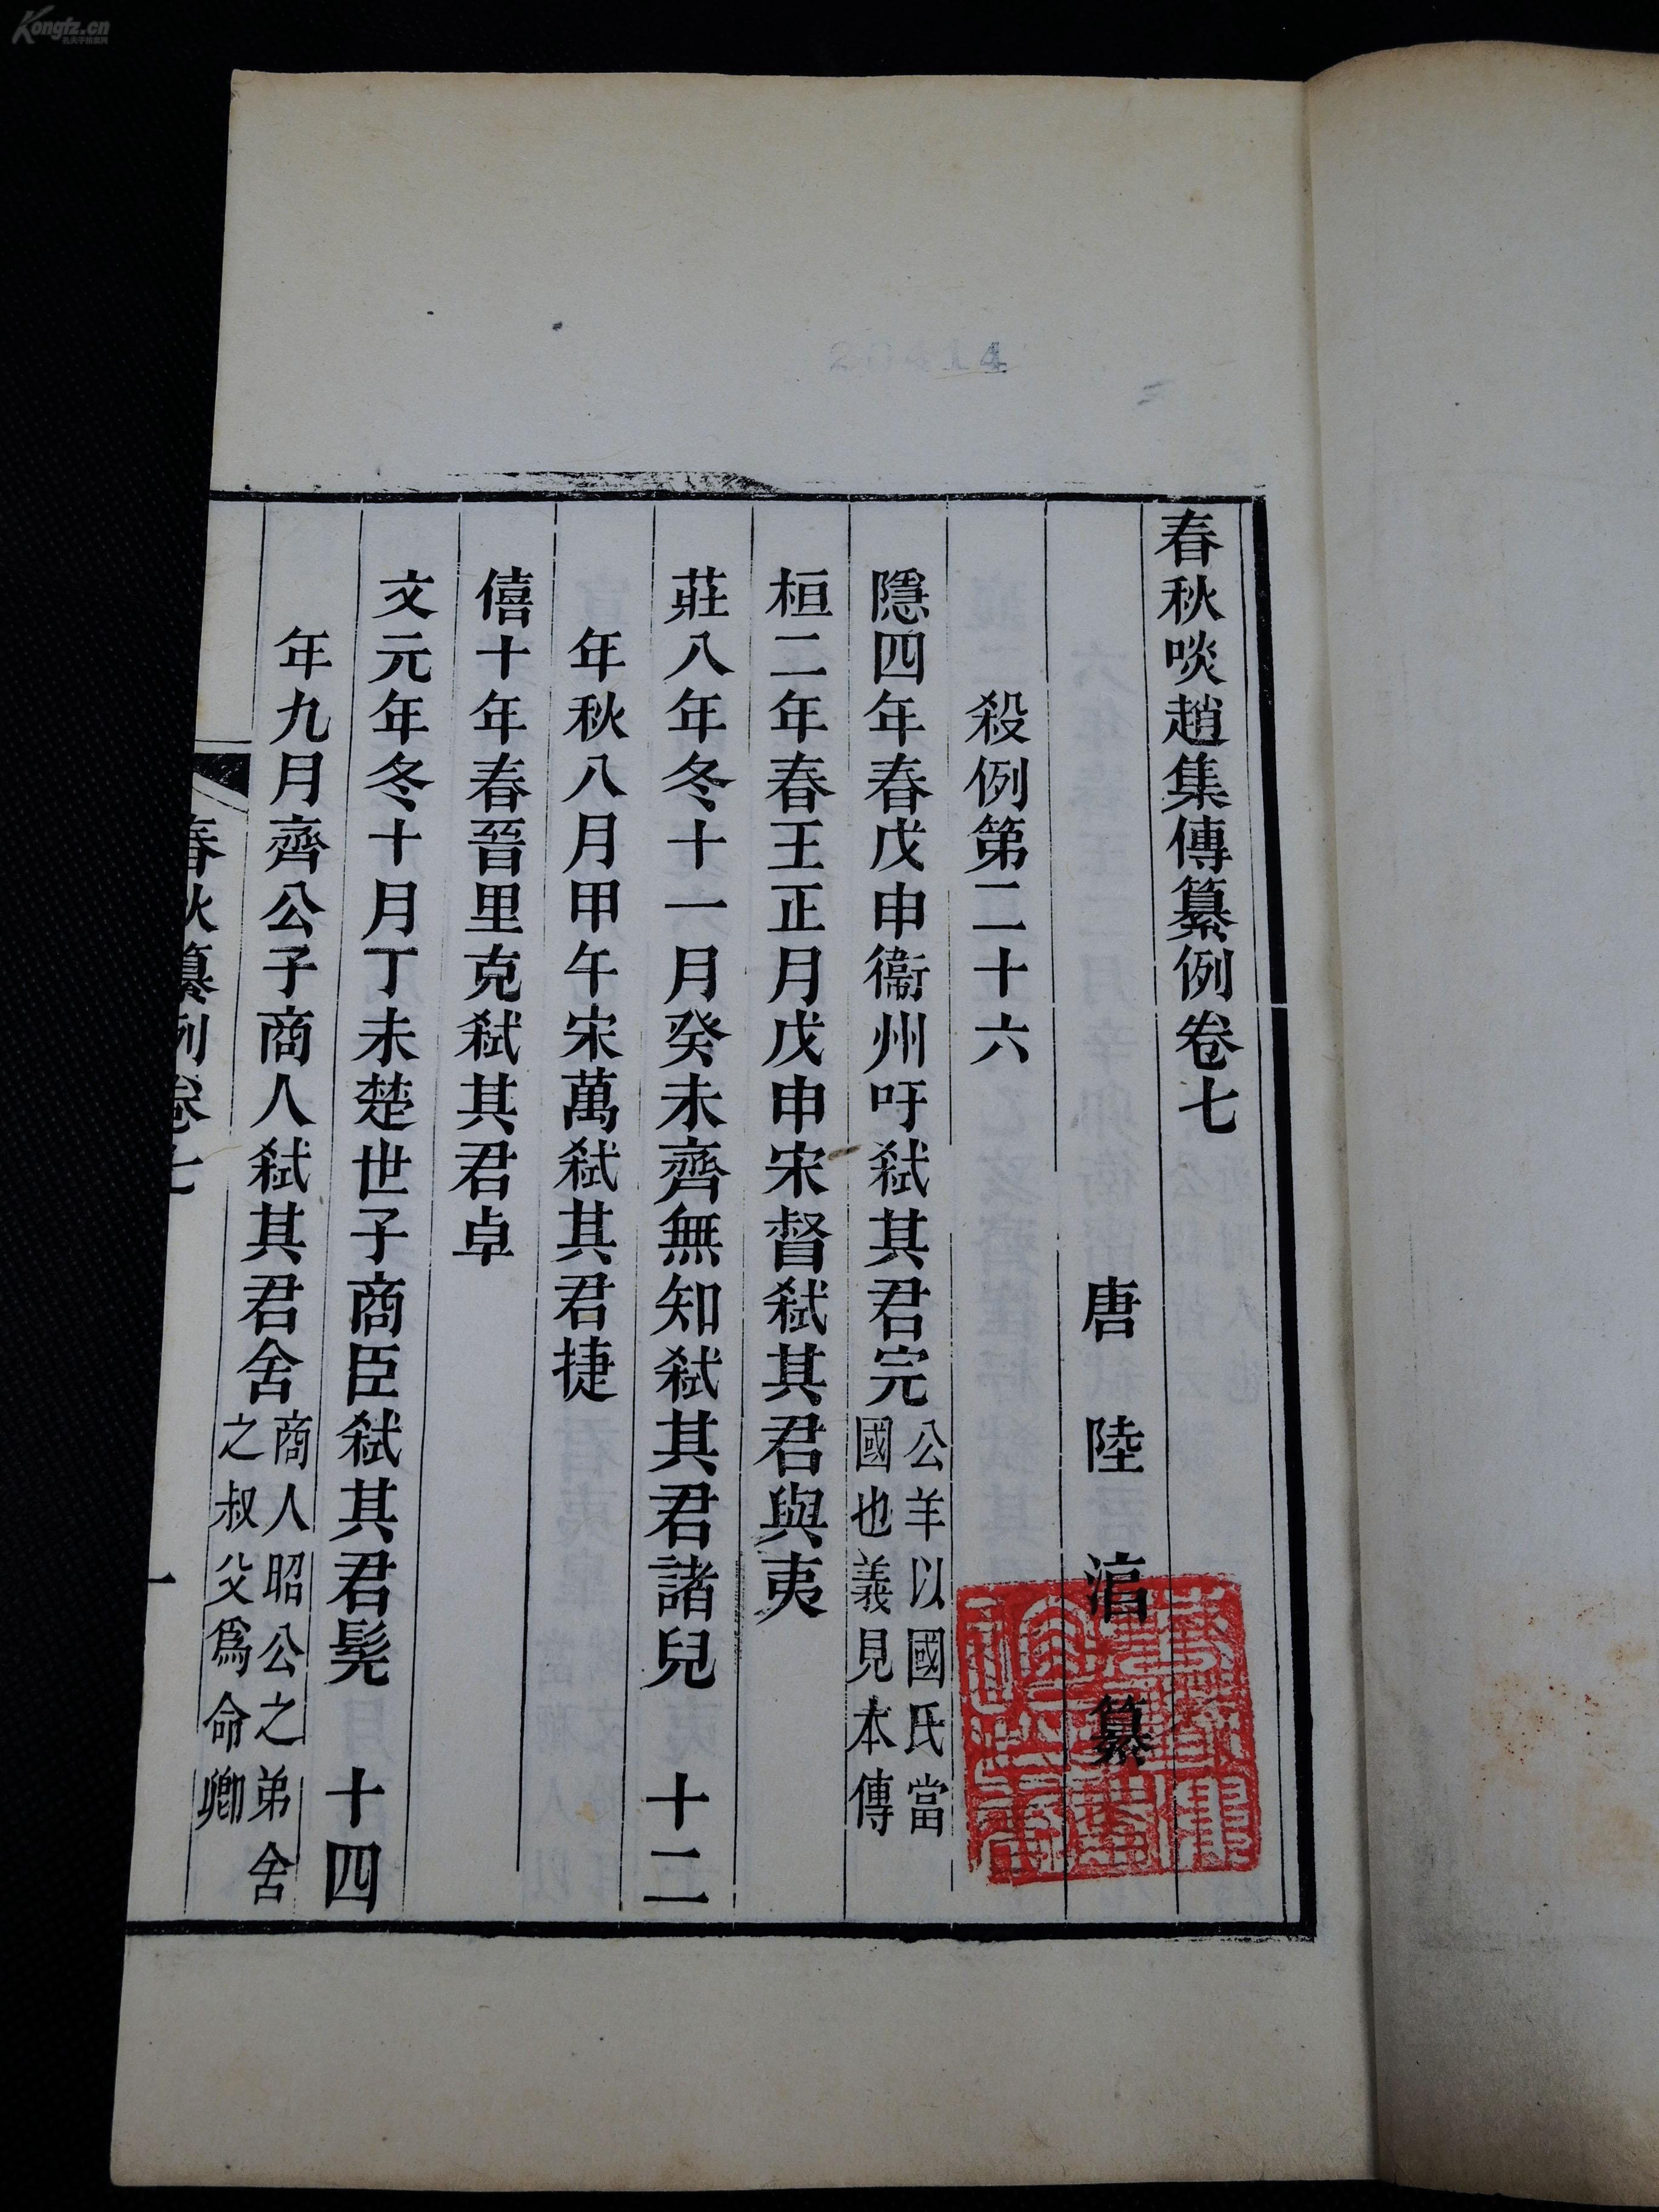 春秋啖趙集傳纂例卷七
唐陸淳纂
殺例第二十六
隱四年春戊申衞州吁弑其君完公羊以國氏當國也義見本傳
桓二年春王正月戊申宋督弑其君與夷
莊八年冬十一月癸未齊無知弑其君諸兒 十二
年秋八月甲午宋萬弑其君捷
僖十年春晉里克弑其君卓
文元年冬十月丁未楚世子商臣弑其君髡 十四
年九月齊公子商人弑其君舍商人昭公之弟舍之叔父爲命卿
春秋纂例卷七 一
Kongfz.cn